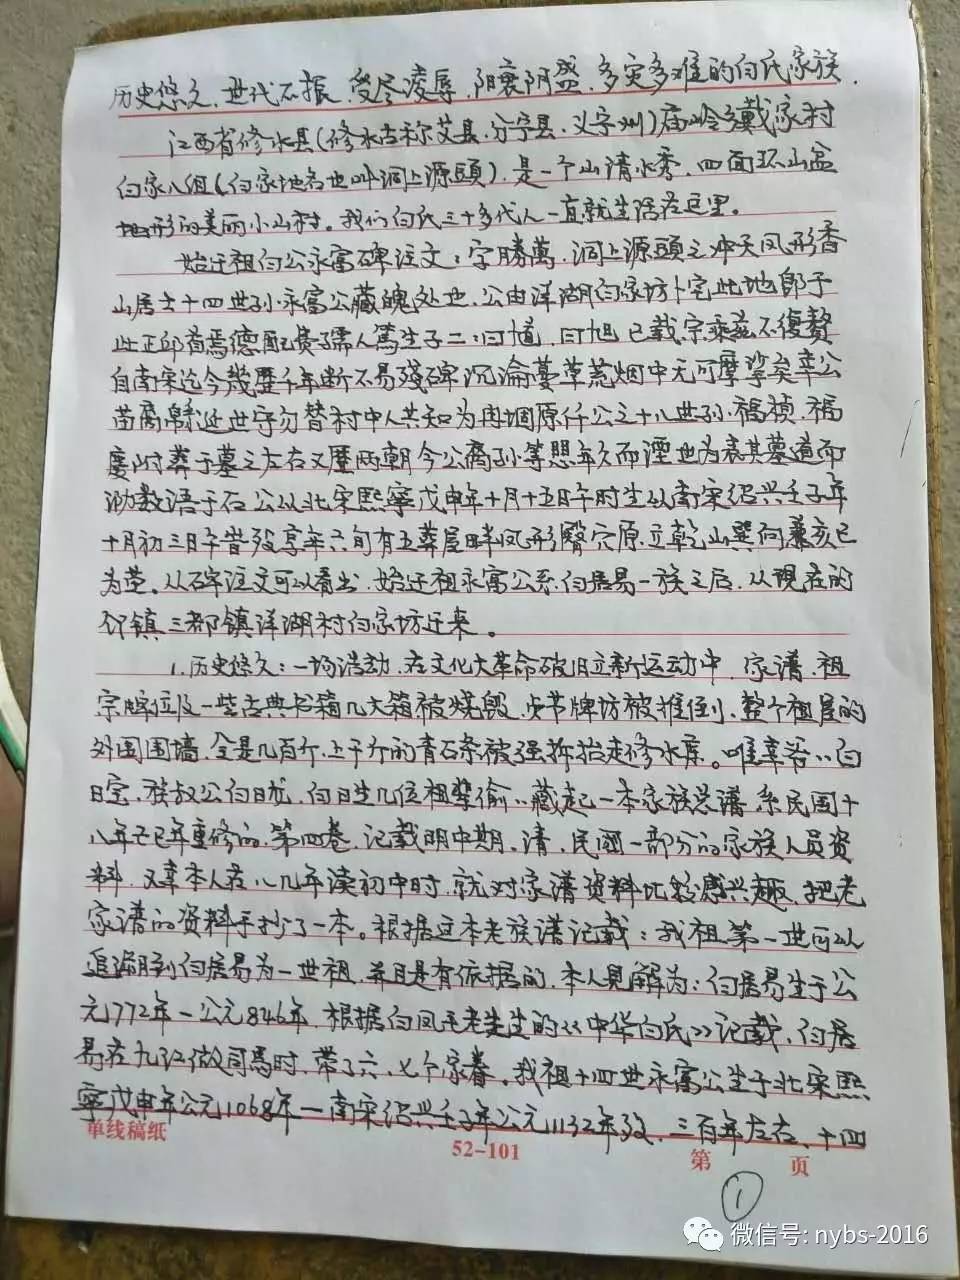 历史悠久，世代不振，受尽凌辱，阳衰阴盛，多灾多难的白氏家族．
江西省修水县(修水古称艾县，分宁县，义宁州)庙岭乡戴家村
白家八组(白家地名也叫洞上源頭)，是一个山清水秀，四面环山盆
地形的美丽小山村。我们白氏三十多代人一直就生活在这里。
始迁祖白公永富碑注文：字勝萬，洞上源頭之冲天凤形香
山居士十四世孙永富公藏魄处也，公由洋湖白家坊卜宅此地即于
此正邱首焉德配黄孺人篤生子二：曰 ，曰旭已载宗乘兹不復贅
自南宋迄今幾歷千年断不易殘碑沉淪蔓草荒烟中无可摩挲矣幸公
苗裔 世守勿替村中人共知为 公之十八世孙福祯，福
慶附葬于墓之左右又歷两朝今公裔孙等想年久而湮也为表其墓道而
泐数语于石公以北宋熙寧戊申年十月十五日午时生以南宋绍兴壬子年
十月初三日午时殁享年六旬有五葬屋畔凤形臀穴原立乾山巽向兼亥巳
为茔。从碑注文可以看出，始迁祖永富公系白居易一族之后，从现在的
邻镇三都镇洋湖村白家坊迁来。
1.历史悠久：一场浩劫，在文化大革命破旧立新运动中，家谱、祖
宗牌位及一些古典书籍几大箱被烧毁，贞节牌坊被推倒，整个祖屋的
外围围墙，全是几百斤、上千斤的青石条被强拆抬走修水库。唯幸爷爷白
日宝，族叔公白日龙，白日生几位祖辈偷偷藏起一本家族老谱，系民国十
八年己巳年重修的，第四卷，记载明中期，清，民國一部分的家族人员资
料，又幸本人在八几年读初中时，就对家谱资料比较感兴趣，把老
家谱的资料手抄了一本。根据这本老族谱记载：我祖第一世可以
追溯到白居易为一世祖，并且是有依据的，本人見解为：白居易生于公
元772年—公元846年，根据白凤毛老先生的《中华白氏》记载，白居
易在九江做司馬时，带了六、七个家眷。我祖十四世永富公生于北宋熙
寧戊申年公元1068年—南宋绍兴壬子年公元1132年殁，三百年左右，十四
单线稿纸
52-101
第 页
①
微信号: nybs-2016